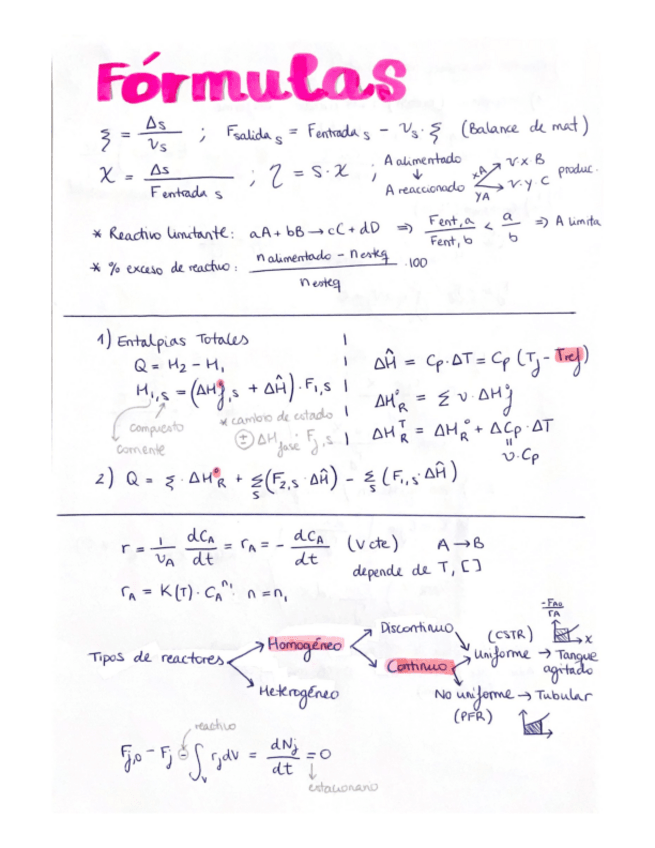 Fórmulas
ξ = Δs / νs ; Fsalida s = Fentrada s - νs · ξ (Balance de mat)
X = Δs / Fentrada s ; η = S · X ; A alimentado ↓ A reaccionado xA ↗ ν · x B yA ↘ ν · y · C produc.
* Reactivo limitante: aA + bB → cC + dD ⇒ Fent,a / Fent,b < a / b ⇒ A limita
* % exceso de reactivo: (n alimentado - n estq) / n estq · 100
1) Entalpias Totales
Q = H2 - H1
Hi,s = (ΔH°f,s + ΔĤ) · Fi,s
compuesto
corriente
* cambio de estado
± ΔHfase · Fj,s
ΔĤ = Cp · ΔT = Cp (Tj - Tref)
ΔH°R = Σ ν · ΔH°f
ΔH^T R = ΔH°R + ΔCp · ΔT
ν · Cp
2) Q = ξ · ΔH°R + Σs (F2,s · ΔĤ) - Σs (F1,s · ΔĤ)
r = 1/νA dCA/dt = rA = - dCA/dt (V cte) A → B
depende de T, [ ]
rA = K(T) · CA^n1 n = n1
Tipos de reactores
Homogéneo
Heterogéneo
Discontinuo
Continuo
(CSTR)
Uniforme → Tanque agitado
-FA0 / rA
x
No uniforme → Tubular
(PFR)
reactivo
Fj,0 - Fj ⊖ ∫v rj dV = dNj/dt = 0
estacionario